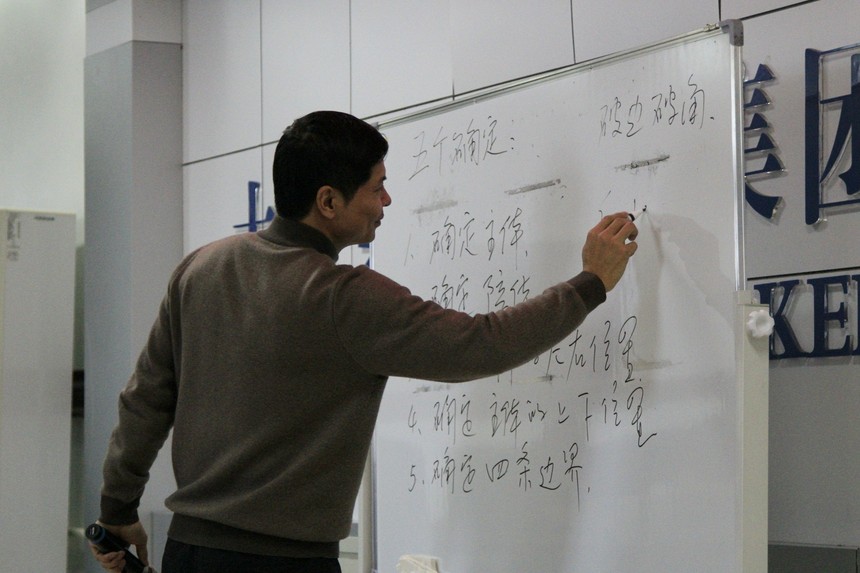 五个确定: 破边破角.
1. 确定主体.
确定陪体
左右位置
4. 确定主体的上下位置
5. 确定四条边界.
美团
KE